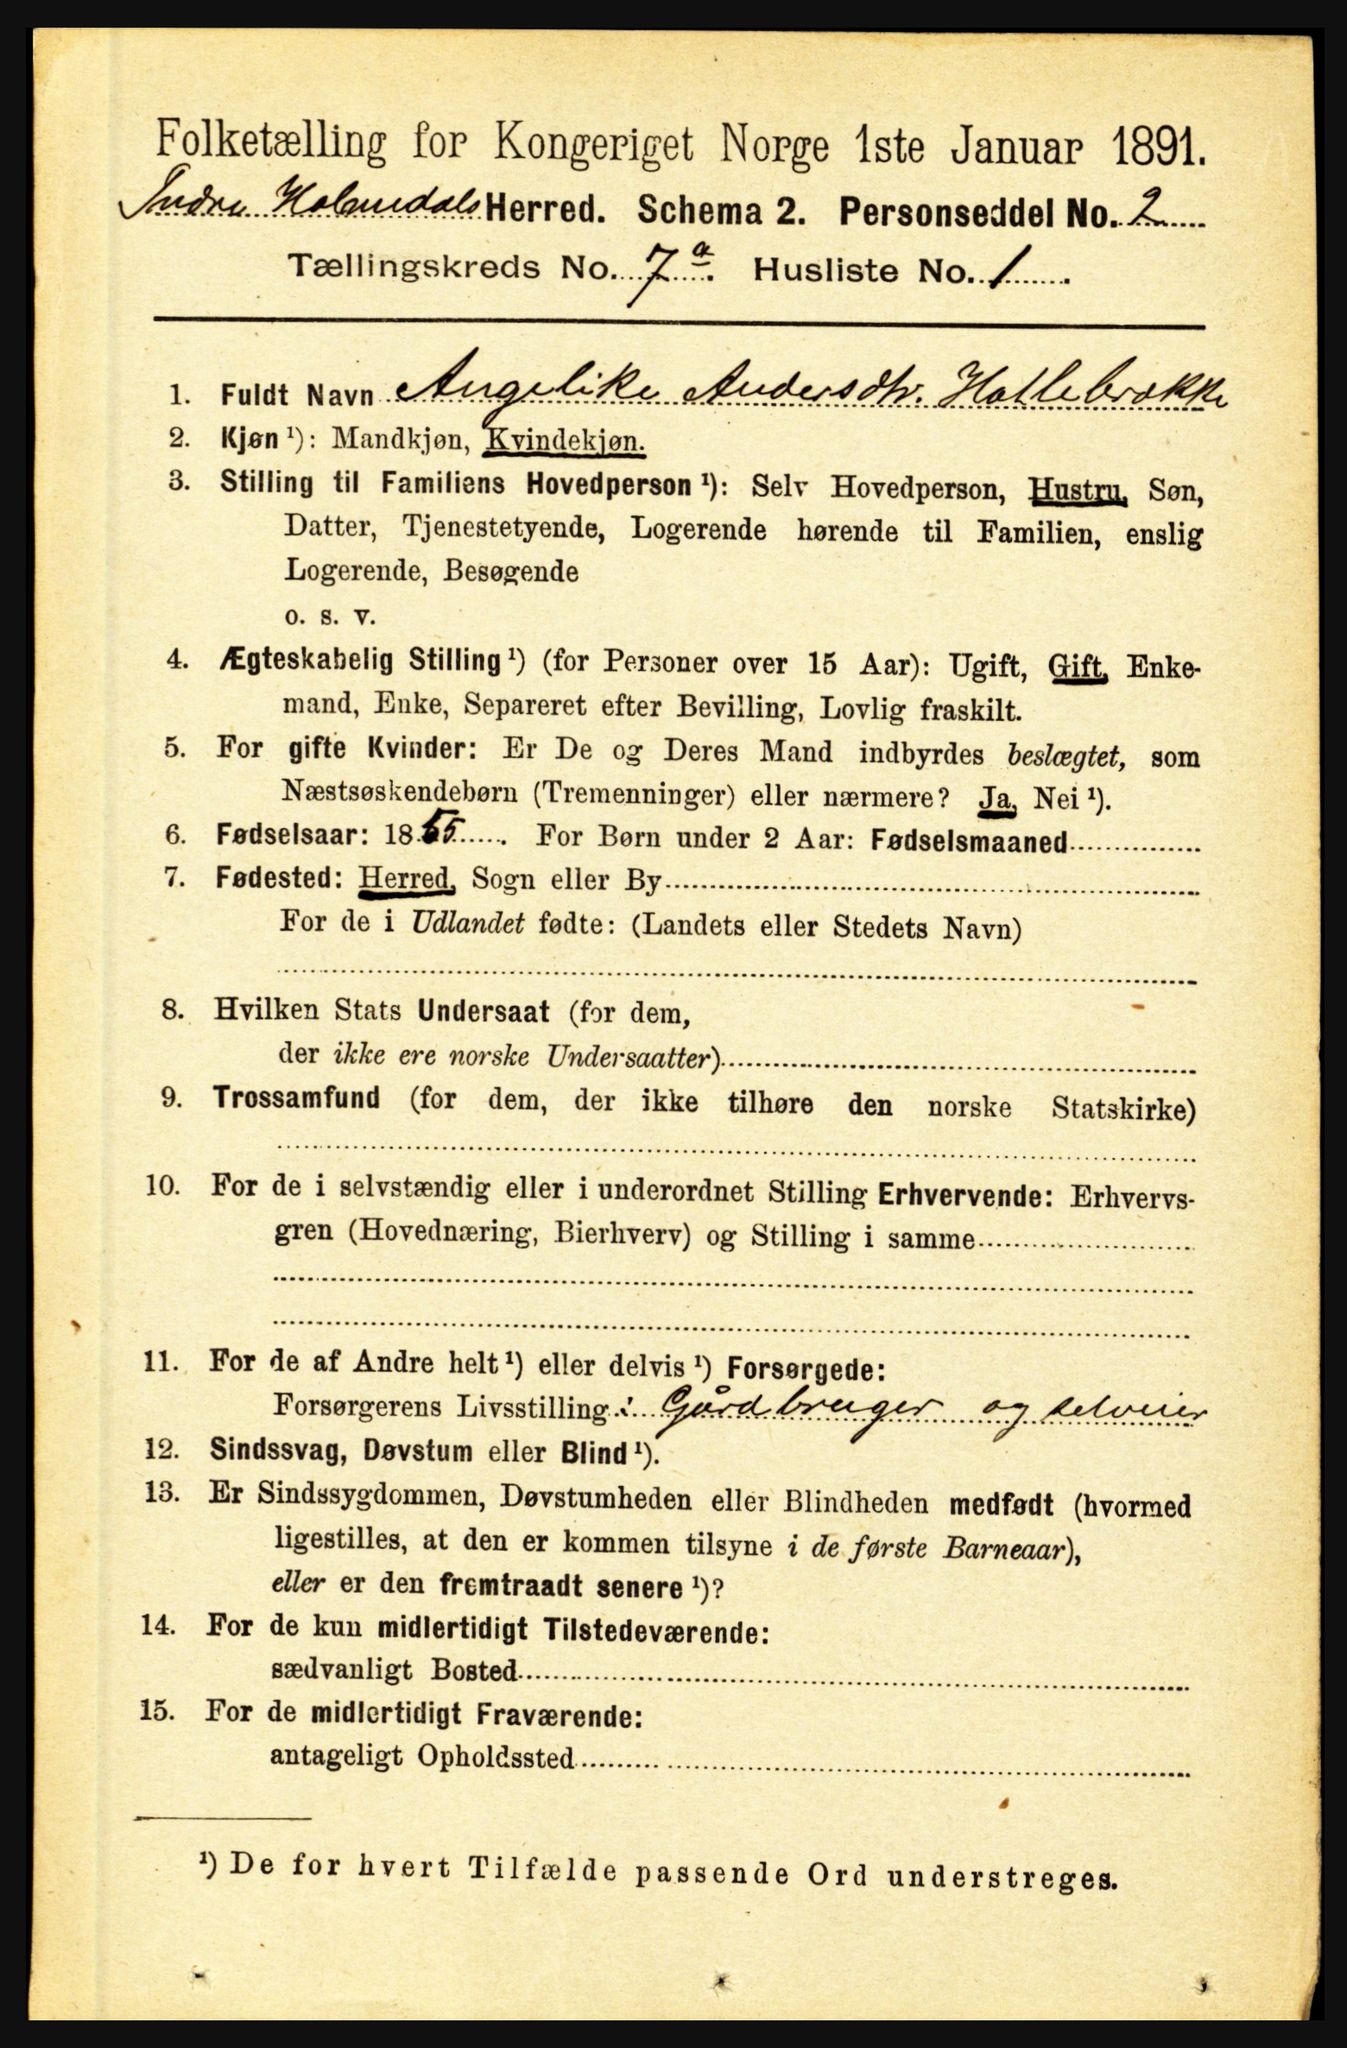 Folketælling for Kongeriget Norge 1ste Januar 1891.
Indre Holmedals Herred. Schema 2. Personseddel No. 2
Tællingskreds No. 7 a. Husliste No. 1.
1. Fuldt Navn Angelike Andersdtr. Hatlebrække
2. Kjøn ¹): Mandkjøn, Kvindekjøn.
3. Stilling til Familiens Hovedperson ¹): Selv Hovedperson, Hustru, Søn,
Datter, Tjenestetyende, Logerende hørende til Familien, enslig
Logerende, Besøgende
o. s. v.
4. Ægteskabelig Stilling ¹) (for Personer over 15 Aar): Ugift, Gift, Enke-
mand, Enke, Separeret efter Bevilling, Lovlig fraskilt.
5. For gifte Kvinder: Er De og Deres Mand indbyrdes beslægtet, som
Næstsøskendebørn (Tremenninger) eller nærmere? Ja, Nei ¹).
6. Fødselsaar: 1855. For Børn under 2 Aar: Fødselsmaaned
7. Fødested: Herred, Sogn eller By
For de i Udlandet fødte: (Landets eller Stedets Navn)
8. Hvilken Stats Undersaat (for dem,
der ikke ere norske Undersaatter)
9. Trossamfund (for dem, der ikke tilhøre den norske Statskirke)
10. For de i selvstændig eller i underordnet Stilling Erhvervende: Erhvervs-
gren (Hovednæring, Bierhverv) og Stilling i samme
11. For de af Andre helt ¹) eller delvis ¹) Forsørgede:
Forsørgerens Livsstilling: Gårdbruger og selveier
12. Sindssvag, Døvstum eller Blind ¹).
13. Er Sindssygdommen, Døvstumheden eller Blindheden medfødt (hvormed
ligestilles, at den er kommen tilsyne i de første Barneaar),
eller er den fremtraadt senere ¹)?
14. For de kun midlertidigt Tilstedeværende:
sædvanligt Bosted
15. For de midlertidigt Fraværende:
antageligt Opholdssted
¹) De for hvert Tilfælde passende Ord understreges.